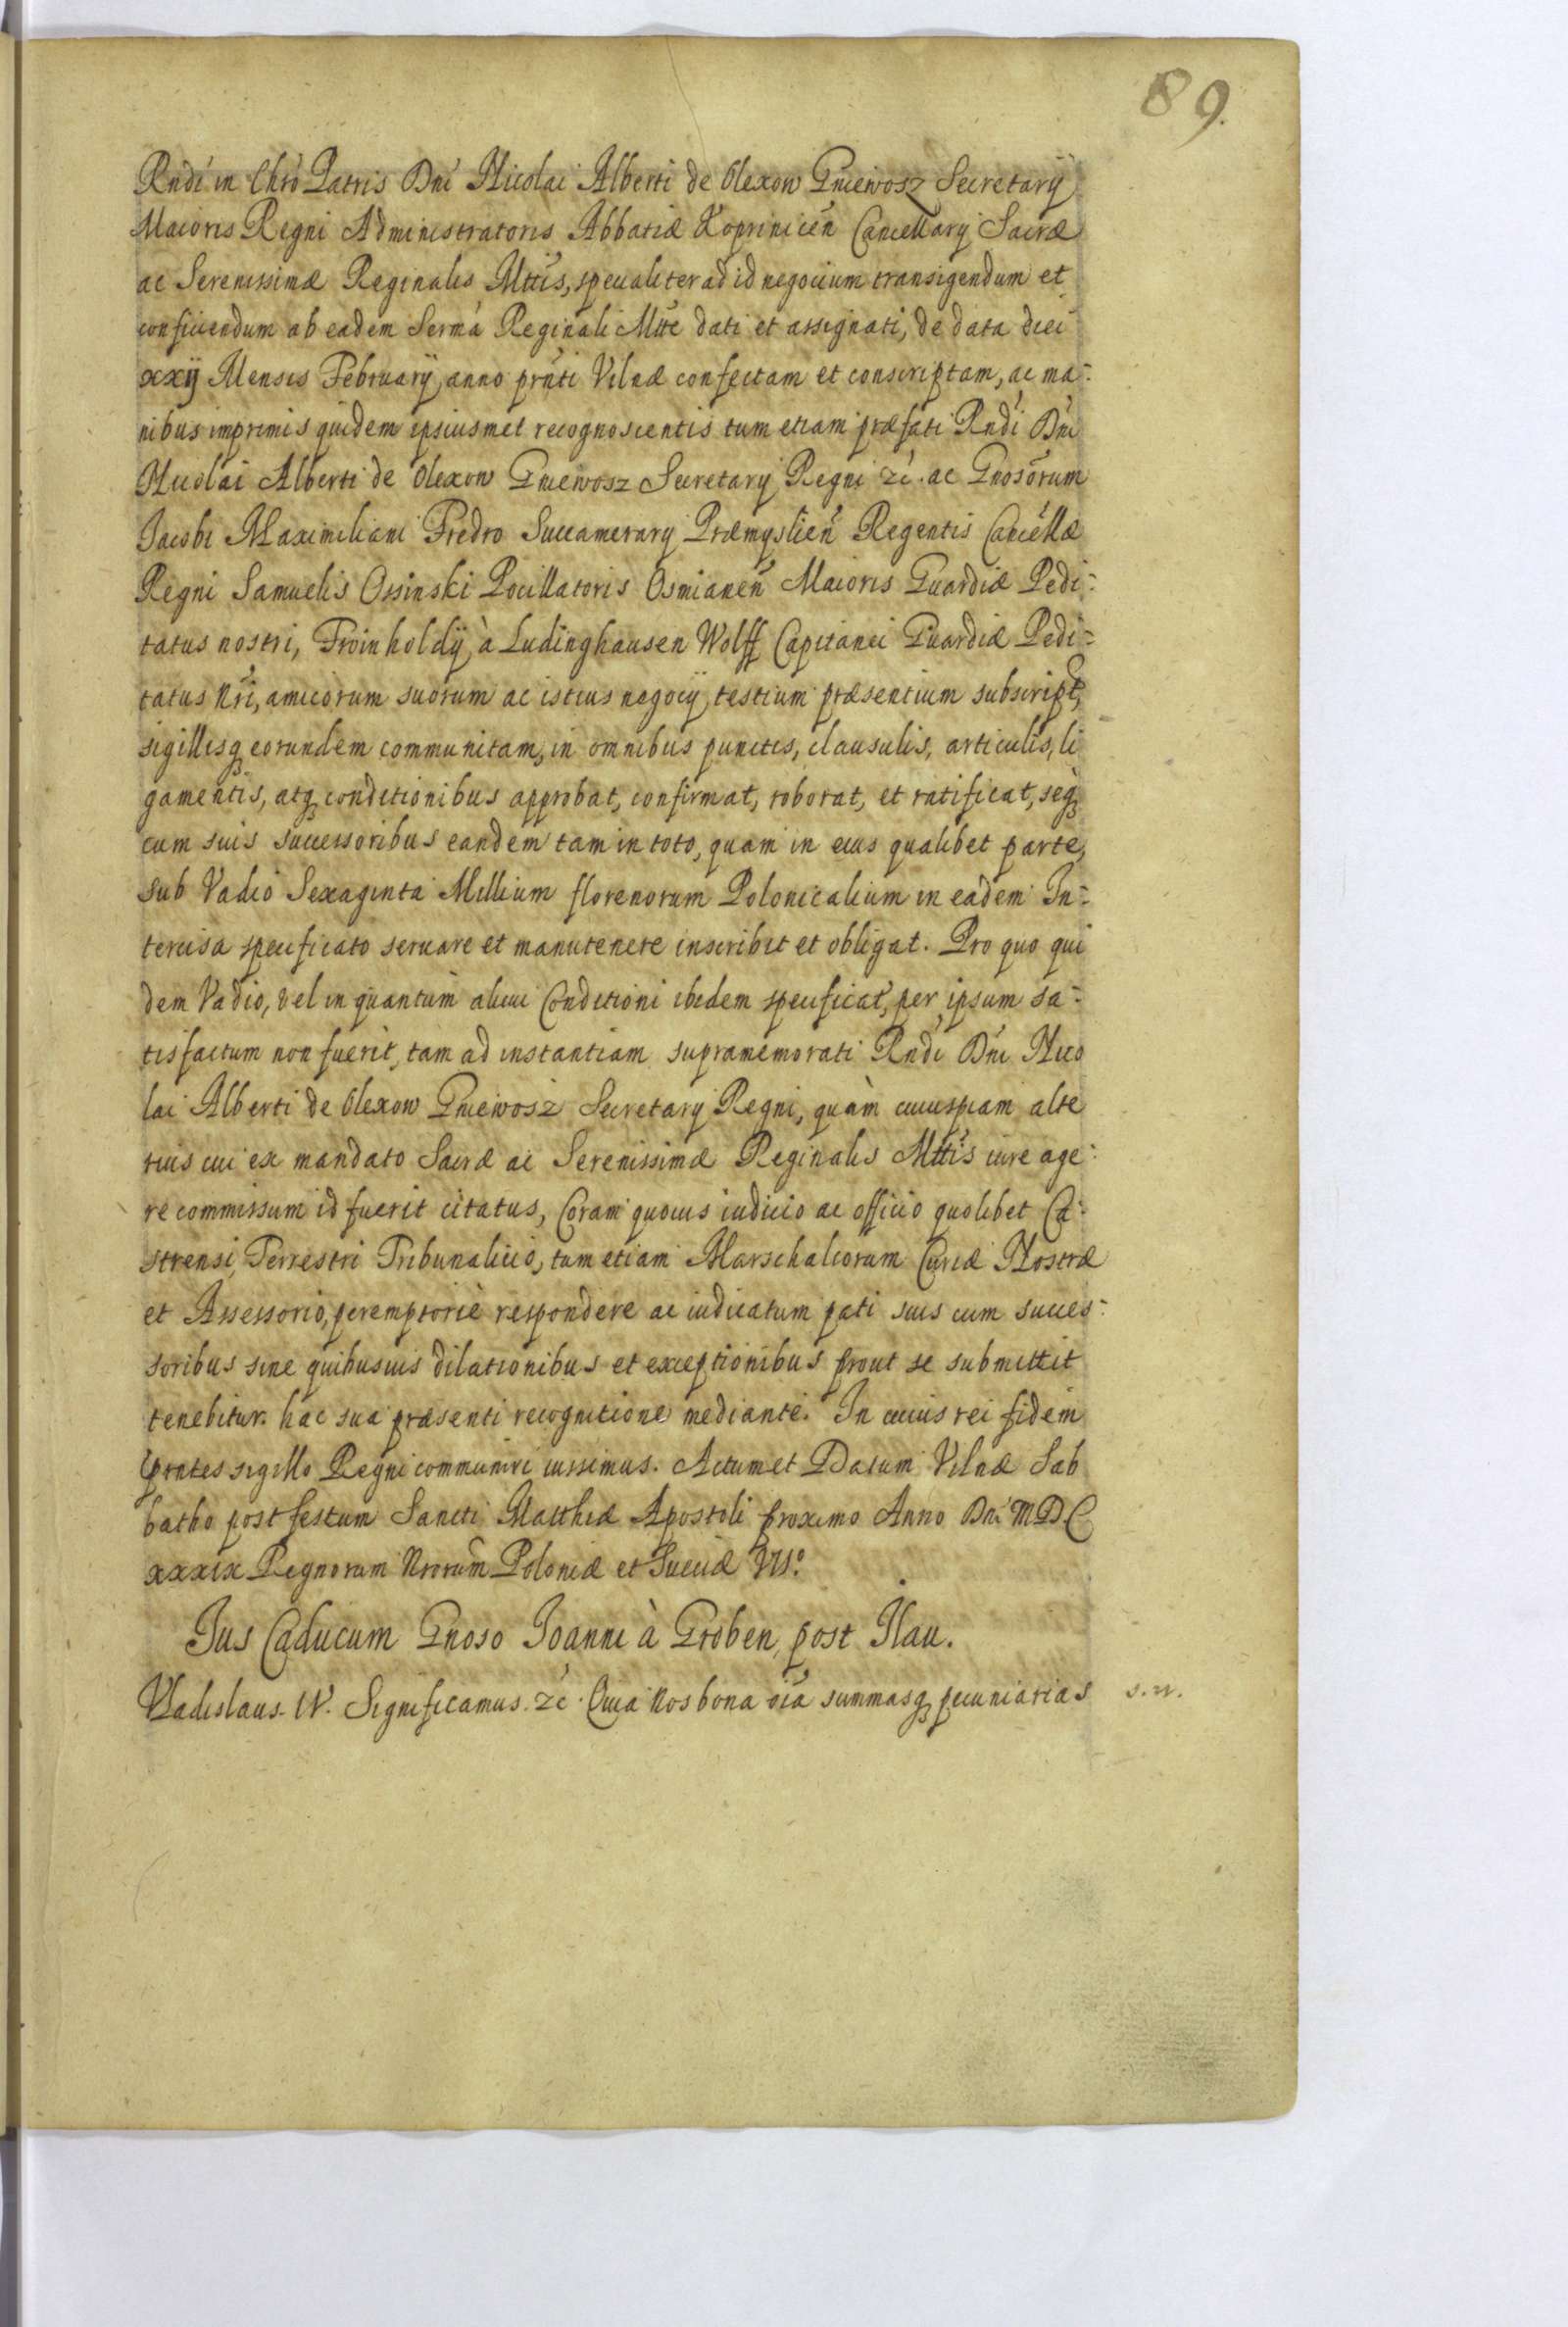 89.
Rndi in Chrō Patris Dni Nicolai Alberti de Olexow Gniewosz Secretarÿ
Maioris Regni Administratoris Abbatiæ Koprinicen̄ Cancellarÿ Sacræ
ac Serenissimæ Reginalis Mttis, specialiter ad id negocium transigendum et
conficiendum ab eadem Sermā Reginali Mtte dati et assignati, de data diei
xxij Mensis Februarÿ, anno prnti Vilnæ confectam et conscriptam, ac ma=
nibus imprimis quidem ipsiusmet recognoscentis tum etiam præfati Rndi Dni
Nicolai Alberti de Olexow Gniewosz Secretarÿ Regni zc. ac Gnosorum
Jacobi Maximiliani Fredro Succamerarÿ Præmyslien̄ Regentis Cancellæ
Regni Samuelis Ossinski Pocillatoris Osmianen̄ Maioris Guardiæ Pedi=
tatus nostri, Froinholdÿ à Ludinghausen Wolff Capitanei Guardiæ Pedi=
tatus Nri, amicorum suorum ac istius negocÿ testium præsentium subscript,
sigillisq eorundem communitam, in omnibus punctis, clausulis, articulis, li
gamentis, atq conditionibus approbat, confirmat, roborat, et ratificat, seq
cum suis successoribus eandem tam in toto, quam in eius qualibet parte,
sub Vadio Sexaginta Millium florenorum Polonicalium in eadem In=
tercisa specificato seruare et manutenere inscribit et obligat. Pro quo qui
dem Vadio, vel in quantùm alicui Conditioni ibidem specificat, per ipsum sa=
tisfactum non fuerit, tam ad instantiam supramemorati Rndi Dni Nico
lai Alberti de Olexow Gniewosz Secretarÿ Regni, quàm cuiuspiam alte
rius cui ex mandato Sacræ ac Serenissimæ Reginalis Mttis iure age=
re commissum id fuerit citatus, Coram quouis iudicio ac officio quolibet Ca=
strensi, Terrestri Tribunalicio, tum etiam Marschalcorum Curiæ Nostræ
et Assessorio, peremptoriè respondere ac iudicatum pati suis cum succes=
soribus sine quibusuis dilationibus et exceptionibus prout se submittit
tenebitur. hac sua præsenti recognitione mediante. In cuius rei fidem
prntes sigillo Regni communiri iussimus. Actum et Datum Vilnæ Sab
batho post festum Sancti Matthiæ Apostoli proximo Anno Dni MDC
xxxix Regnorum Nrorum Poloniæ et Sueciæ VII°.
Jus Caducum Gnoso Joanni à Groben, post Ilau.
Vladislaus IV. Significamus. zc. Quia Nos bona oīa summasq pecuniarias s. n.